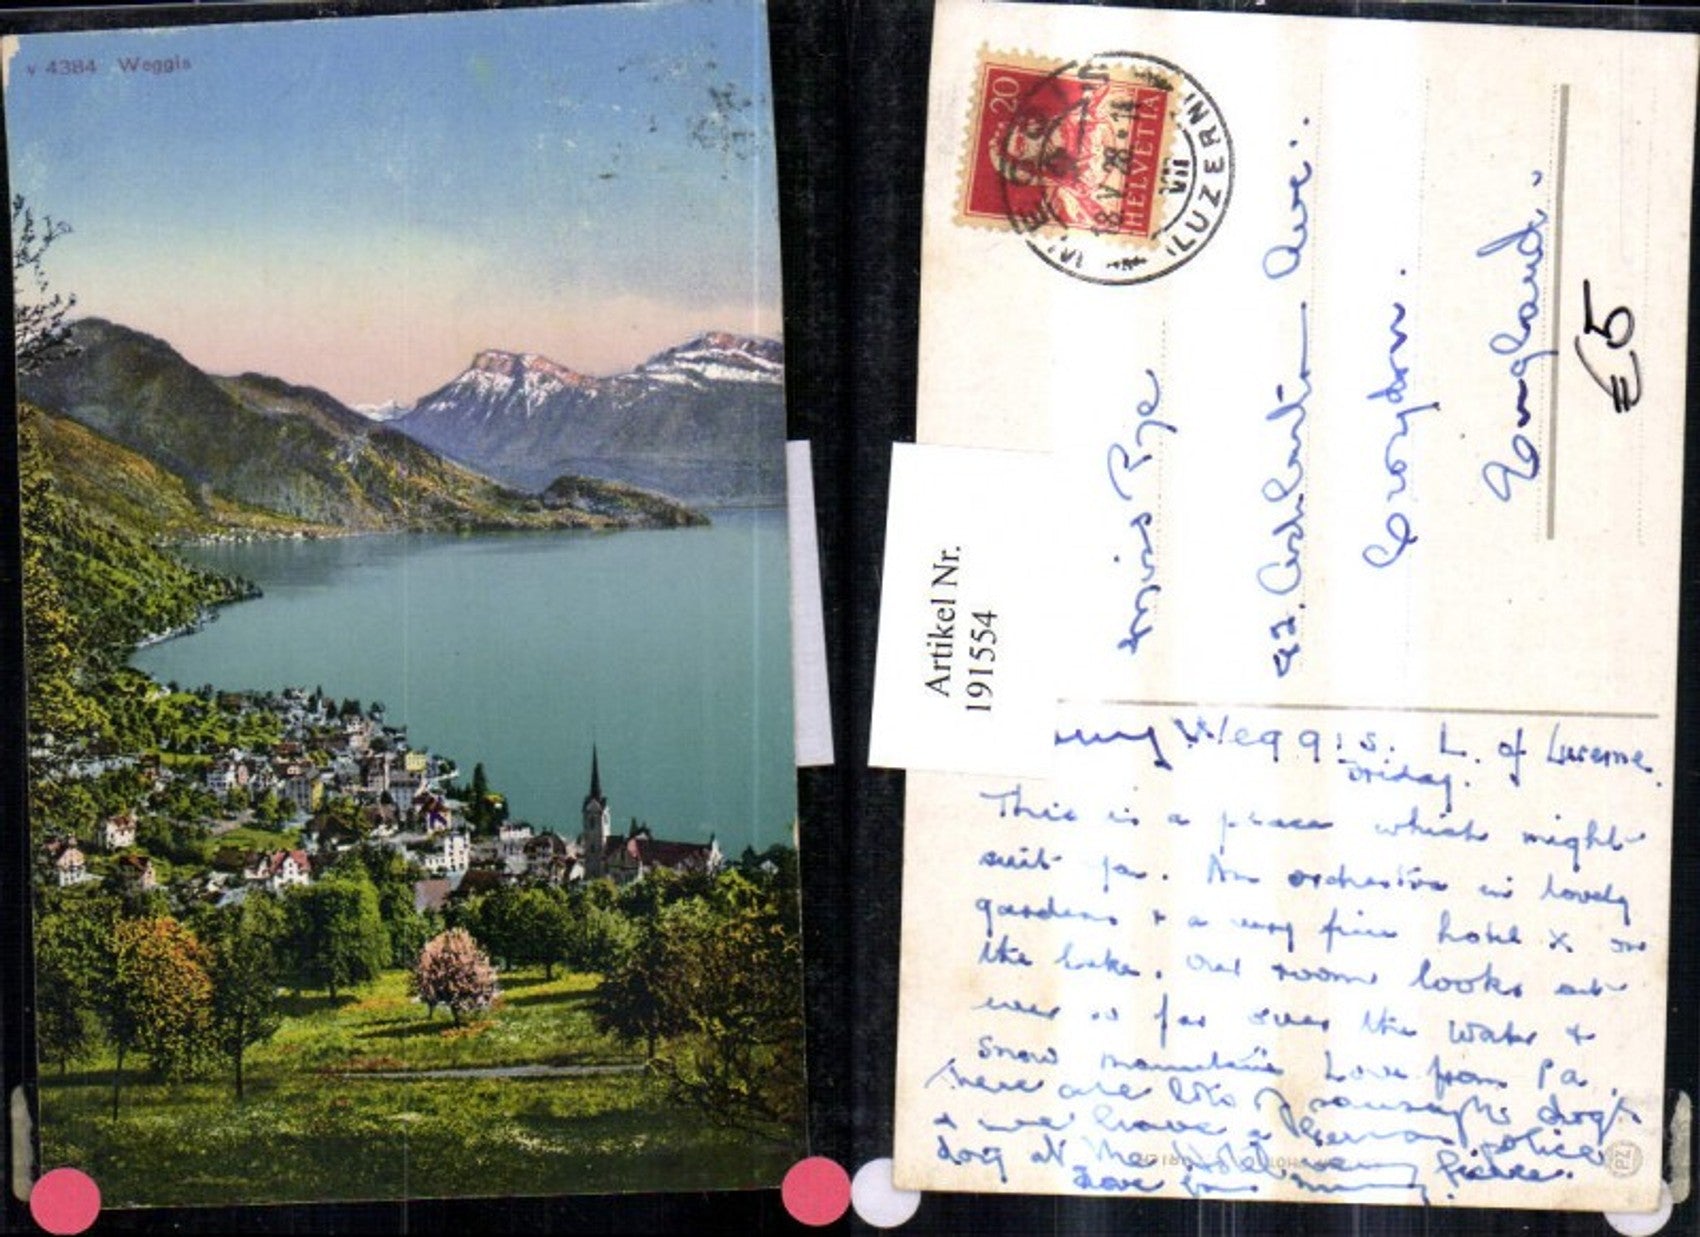 v 4384 Weggis
20
HELVETIA
18 V 28
VII
(LUZERN)
Miss Rye
Ashburton Ave.
Croydon.
England.
€5
Artikel Nr.
191554
Weggis. L. of Lucerne.
Friday.
This is a place which might
suit you. An orchestra in lovely
gardens & a very fine hotel x on
the lake. Our room looks out
over as far over the water &
snow mountains Love from Pa.
There are lots of sausage dogs
& we have a German police
dog at the Hotel very fierce.
love from
PZ